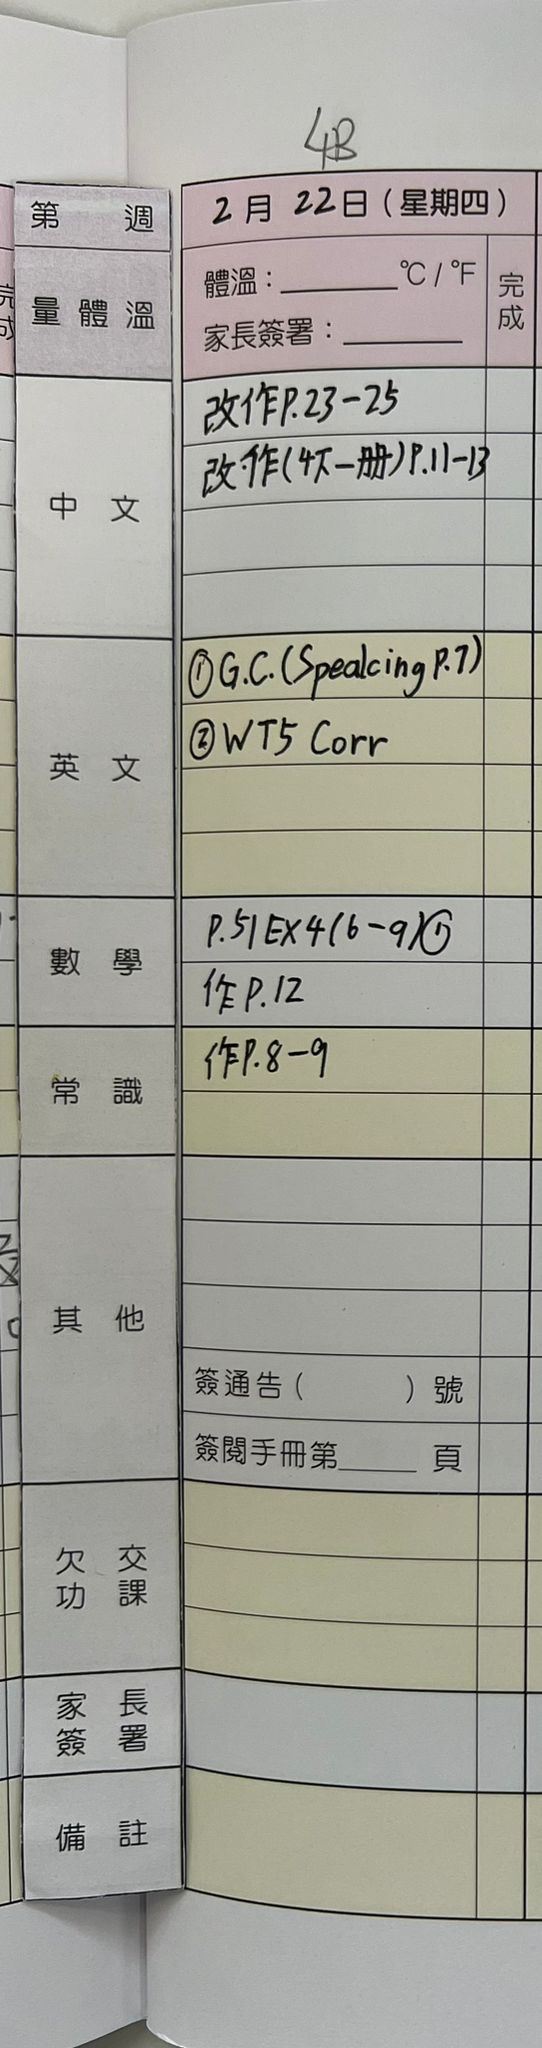 4B
第 週
2月22日(星期四)
量體溫
體溫：______°C / °F
家長簽署：______
完成
中文
改作P.23-25
改作(4下一册)P.11-13
英文
①G.C.(Spealcing P.7)
②WT5 Corr
數學
P.51EX4(6-9)①
作P.12
常識
作P.8-9
其他
簽通告( )號
簽閱手冊第____頁
欠交功課
家長簽署
備註